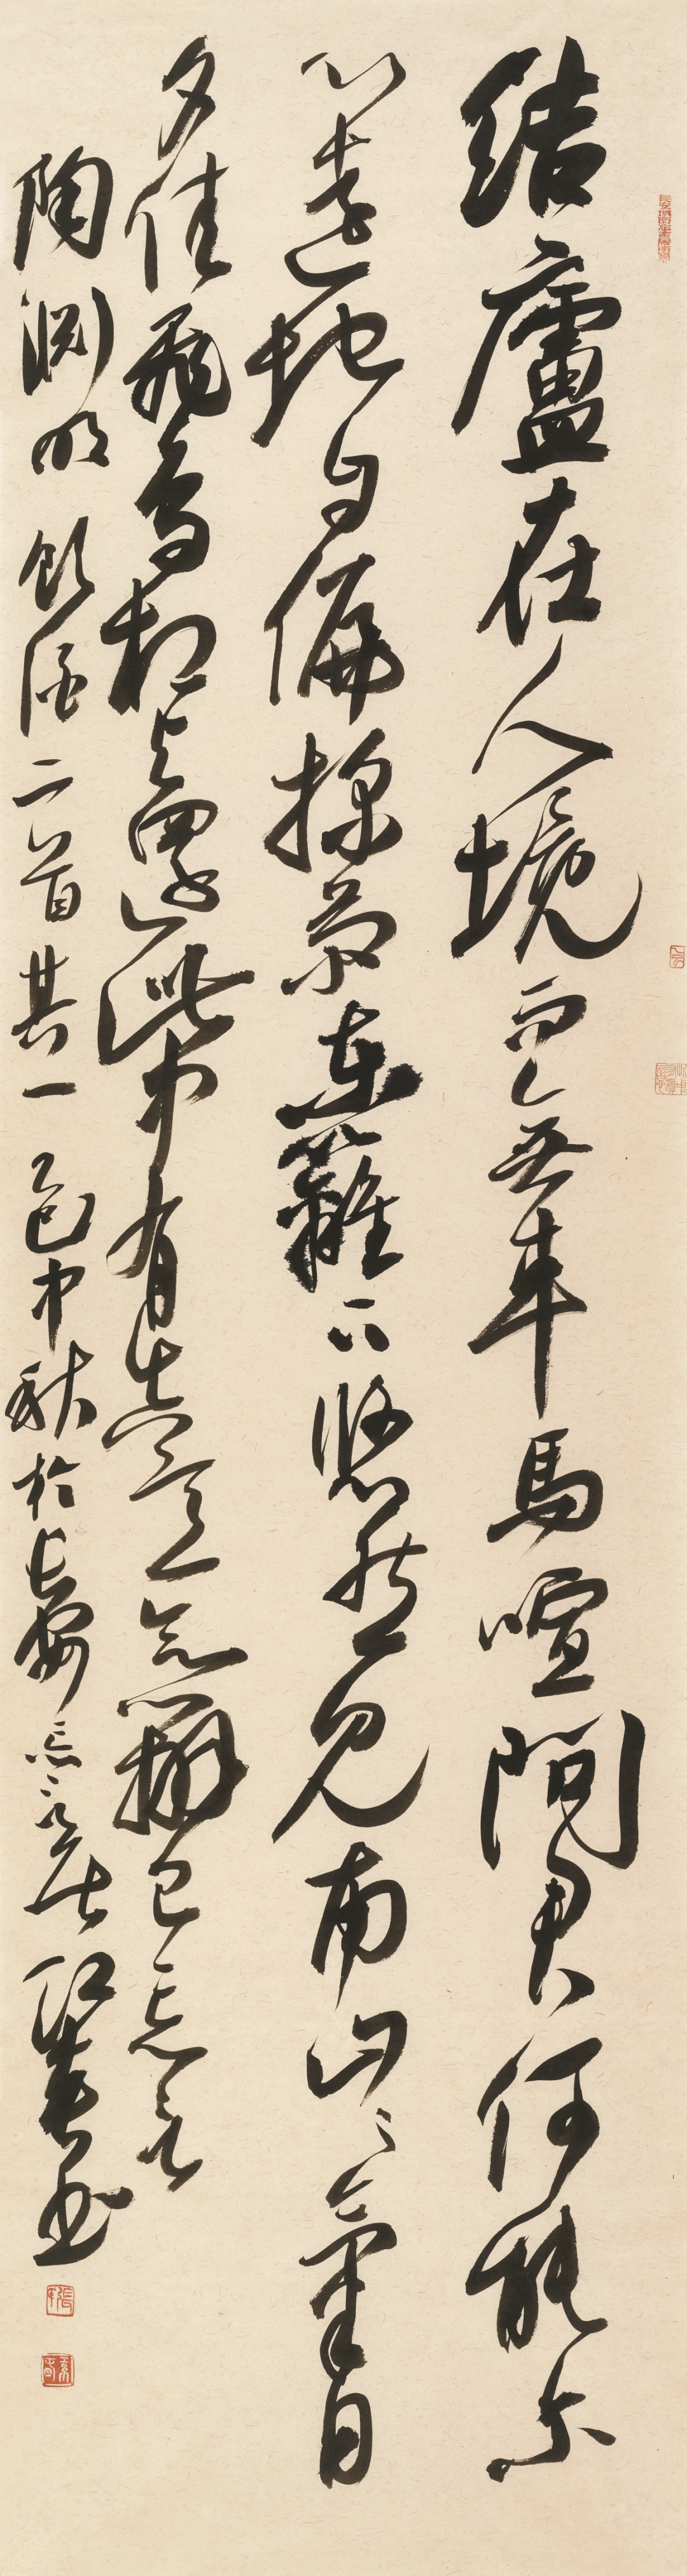 结廬在人境而無車馬喧問君何能尔
心遠地自偏採菊東籬下悠然見南山山氣日
夕佳飛鳥相與還此中有真意欲辯已忘言
陶渊明飲酒二首其一 中秋於長安 書